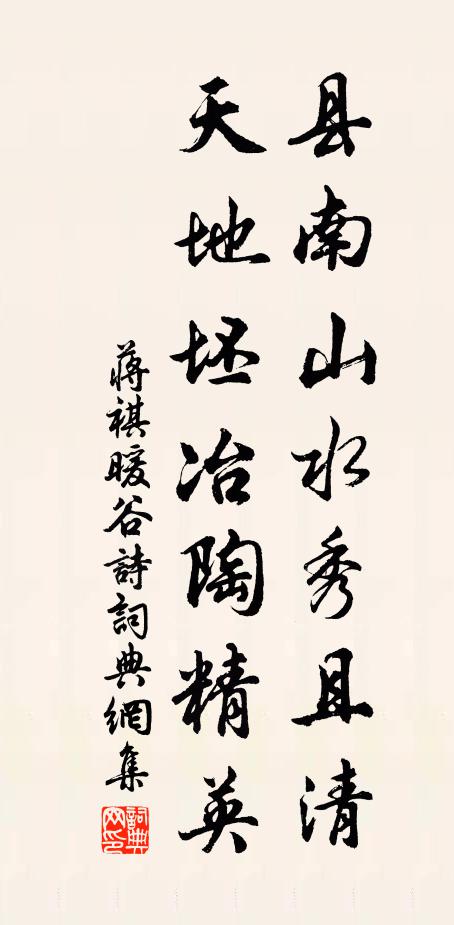 县南山水秀且清
天地坯冶陶精英
蔣祺暖谷詩詞典網集
詞典網印